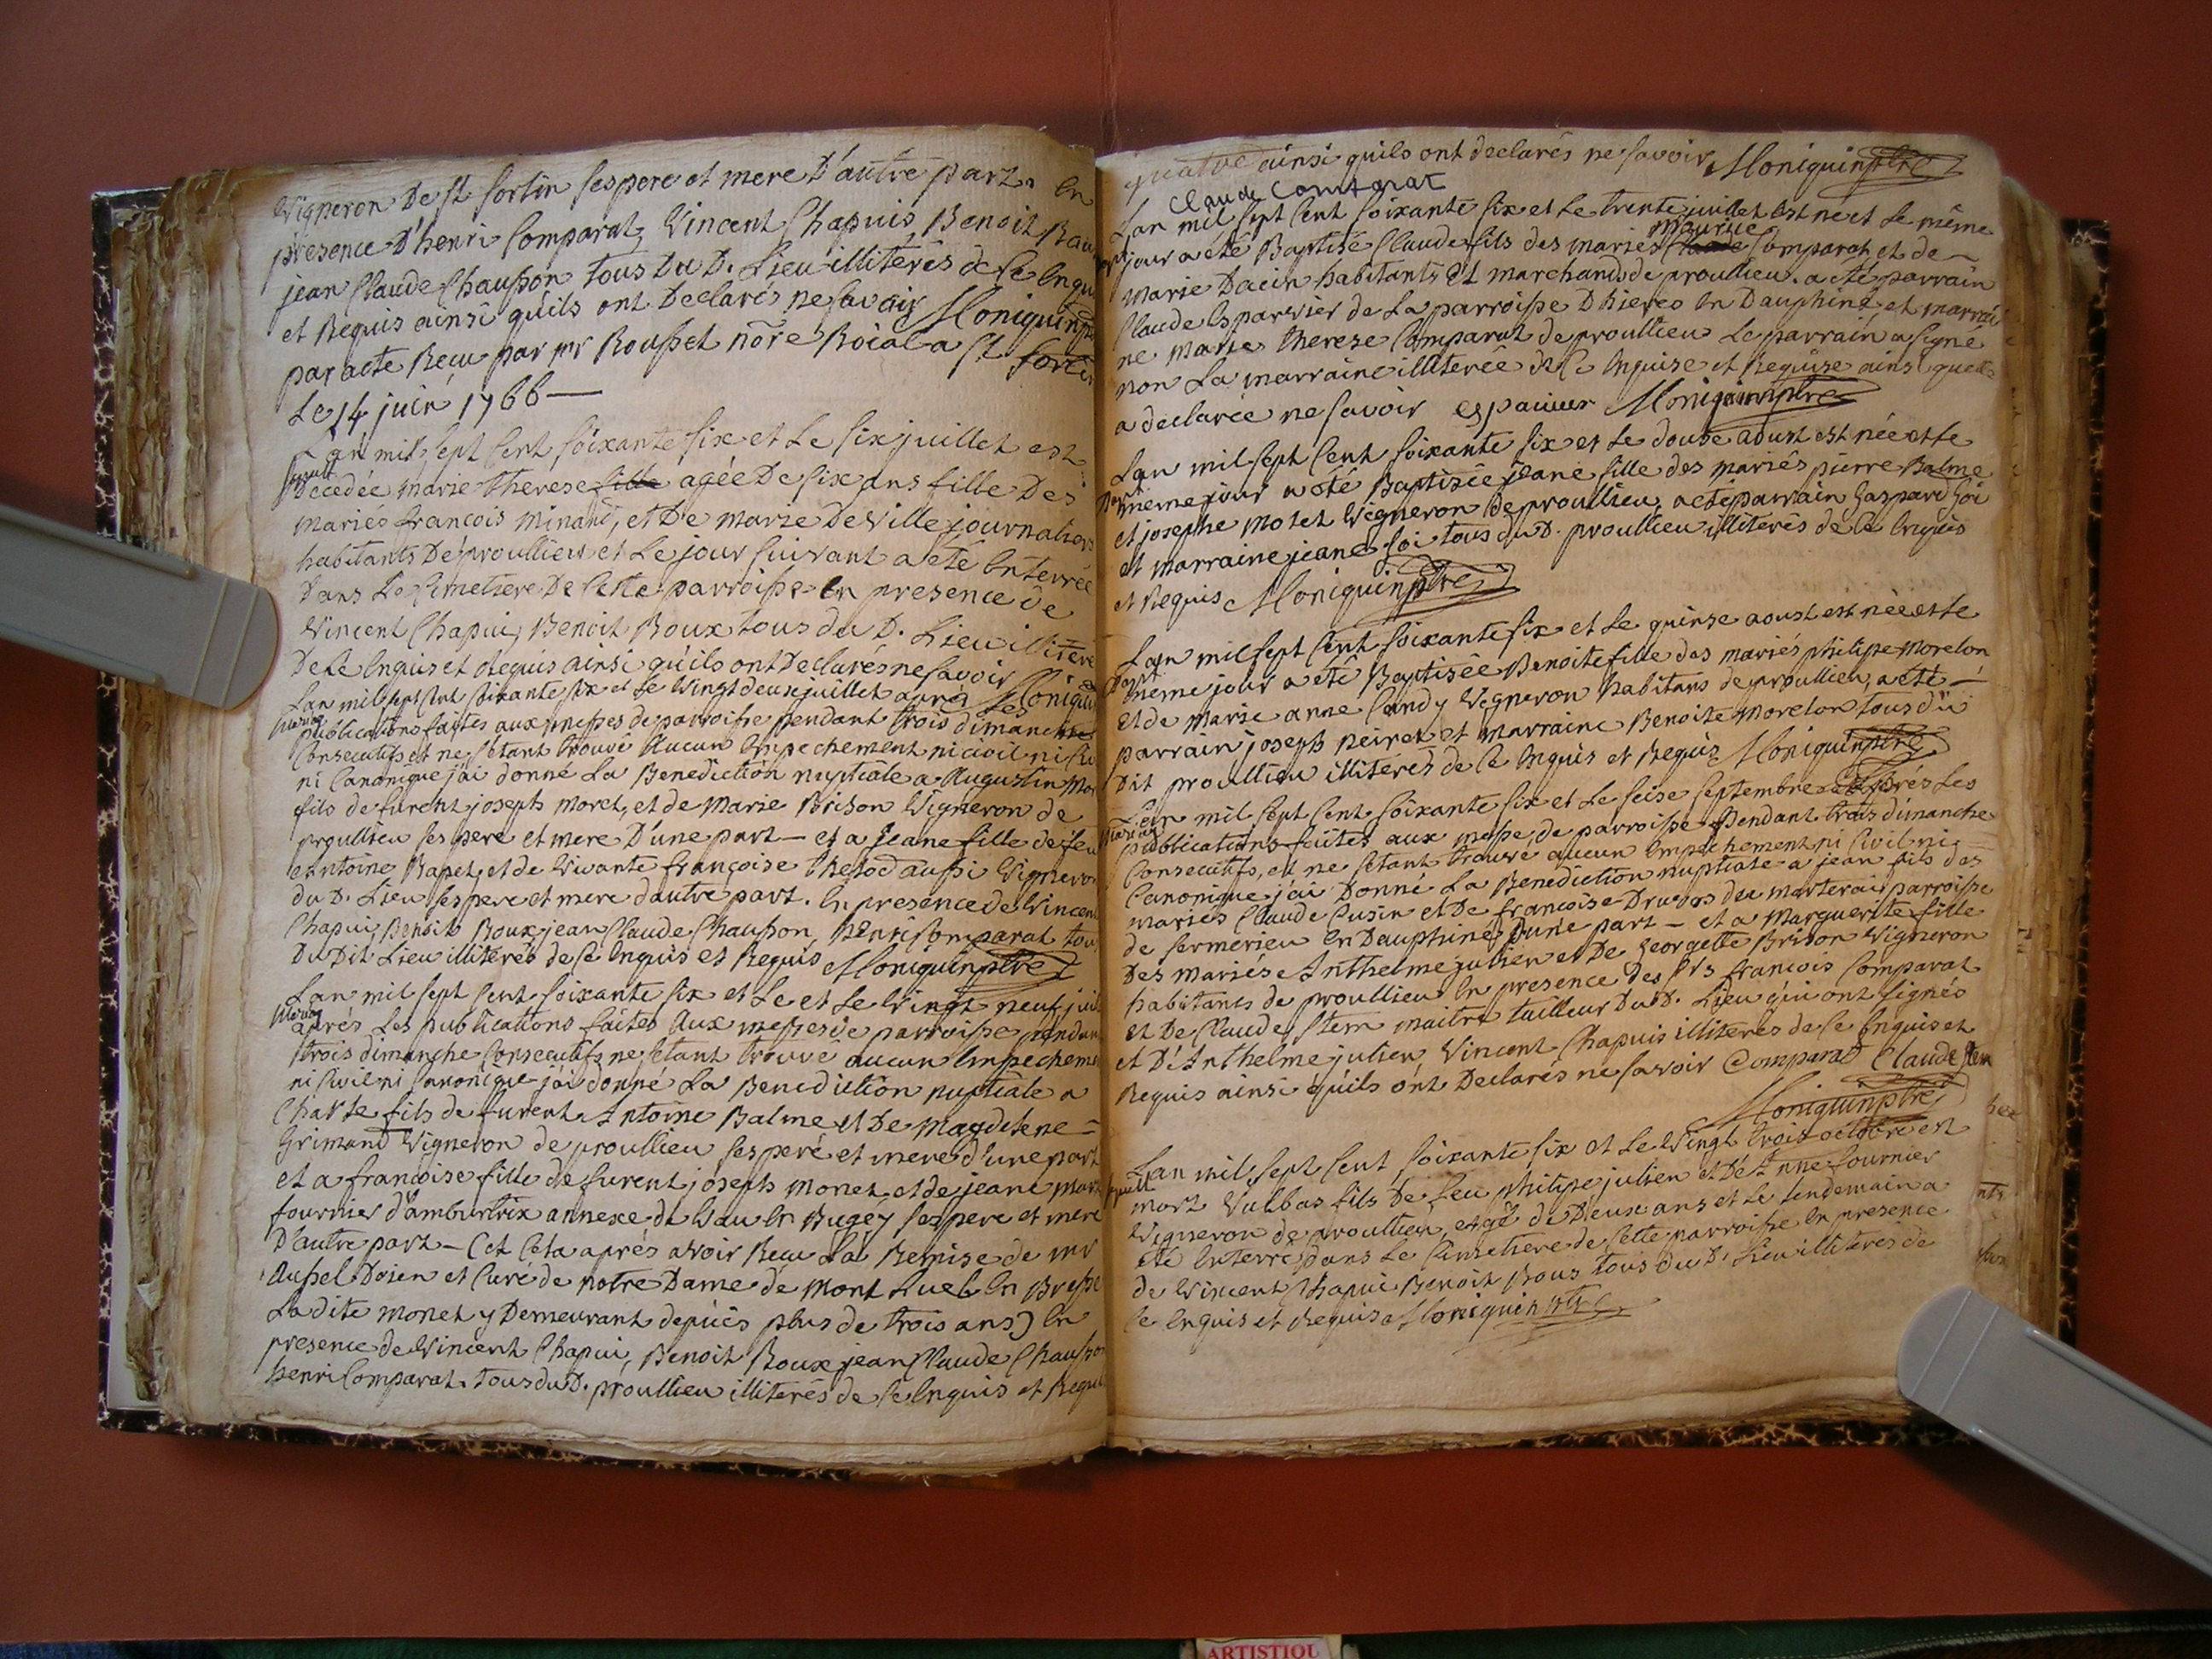 Vigneron De st sortin ses pere et mere D'autre part. en
presence D'henri Comparat, Vincent Chapuis, Benoit
jean Claude Chausson tous Du D. Lieu illiterés de ce
et Requis ainsi qu'ils ont Declarés ne savoir Moniquin
par acte Reçu par mr Rousset nōre Roial a st sortin
Le 14 juin 1766
Lan mil sept cent soixante six et le six juillet est
Decedée marie therese fille agée De six ans fille Des
mariés francois minand, et De marie Deville journaliers
habitants De proullieu et le jour suivant a été enterrée
Dans Le Cimetiere De cette parroisse en presence de
Vincent Chapui, Benoit Roux tous du D. Lieu illiteré
De ce enquis et Requis ainsi qu'ils ont Declarés ne savoir Moniquin
Lan mil sept cent soixante six et le vingt deuse juillet aprés Les
mariag
publications faites aux messes de parroisse pendant trois dimanches
Consecutifs et ne s'etant trouvé aucun empechement ni
ni Canonique j'ai donné La Benediction nuptiale a Augustin
fils de furent joseph moret, et de marie Brison Vigneron de
proullieu ses pere et mere D'une part – et a jeane fille de feu
antoine Rapet, et de vivante françoise aussi Vigneron
du D. Lieu ses pere et mere d'autre part. en presence de Vincent
Chapui, Benoit Roux jean Claude Chausson, Henri Comparat tous
Du Dit Lieu illiterés de ce enquis et Requis Moniquin ptre
Lan mil sept cent soixante six et Le et Le vingt neuf
mariag
aprés Les publications faites aux messes de parroisse pendant
trois dimanche Consecutifs ne s'etant trouvé aucun empecheme
ni Civil ni Canonique j'ai donné La Benediction nuptiale a
Charle fils de furent Antoine Balme et De magdelene =
Grimand Vigneron de proullieu ses peré et mere d'une part
et a francoise fille de furent joseph monet, et de jeane
fournier d'ambutrix annexe de Vau en Bugey ses pere et mere
D'autre part – (et cela aprés avoir Recu La Remise de mr
Aussel Doien et Curé de notre Dame de Mont Luel en Bresse
Ladite monet y Demeurant depuis plus de trois ans) en
presence de Vincent Chapui, Benoit Roux jean Claude Chausson
henri Comparat tous du D. proullieu illiterés de ce enquis et Requis
quatre ainsi quils ont declarés ne savoir Moniquin ptre
Claude Comparat
Lan mil sept cent soixante six et Le trente juillet est ne et Le même
jour a été Baptisé Claude fils des mariés maurice Comparat et de
Marie Dacin habitants et marchands de proullieu. a été parrain
Claude Esparvier de La parroisse Dhieres en Dauphiné et marrai
ne Marie therese Comparat de proullieu Le parrain a signé
non La marraine illiterée de ce enquise et Requise ainsi quelle
a declarée ne savoir Moniquin ptre
Lan mil sept cent soixante six et Le douse aoust est née et le
même jour a été Baptisée jeane fille des mariés pierre Balme
et josephe motet Vigneron de proullieu, a été parrain Gaspard Goi
et marraine jeane Goi tous du D. proullieu illiterés de ce enquis
et Requis Moniquin ptre
Lan mil sept cent soixante six et Le quinse aoust est née et le
même jour a été Baptisée Benoite fille des mariés philipe morelon
et de Marie anne Candy Vigneron habitans de proullieu, a été –
parrain joseph peiret et marraine Benoite morelon tous du
Dit proullieu illiterés de ce enquis et Requis Moniquin ptre
Lan mil sept cent soixante six et Le seise septembre aprés Les
mariag
publications faites aux messe de parroisse pendant trois dimanche
Consecutifs, et ne s'etant trouvé aucun empechement ni Civil ni
Canonique j'ai Donné La Benediction nuptiale a jean fils des
mariés Claude Cusin et De francoise du marterai parroisse
de sermerieu en Dauphiné d'une part – et a Marguerite fille
Des mariés Anthelme julien et De Georgette Brison Vigneron
habitants de proullieu en presence des srs francois Comparat
et De Claude Stem maitre tailleur Du D. Lieu qui ont signés
et D'Anthelme julien, Vincent Chapuis illiteres de ce enquis et
Requis ainsi qu'ils ont Declarés ne savoir Comparat Claude Stem
Moniquin ptre
Lan mil sept cent soixante six et Le vingt trois octobre est
mort Vulbas fils De feu philipe julien et D'Anne fournier
Vigneron de proullieu, agé de Deux ans et le lendemain a
été enterré dans Le Cimetiere de cette parroisse en presence
de Vincent Chapui Benoit Rous tous du D. Lieu illiterés de
ce enquis et Requis Moniquin ptre
ARTISTIQU